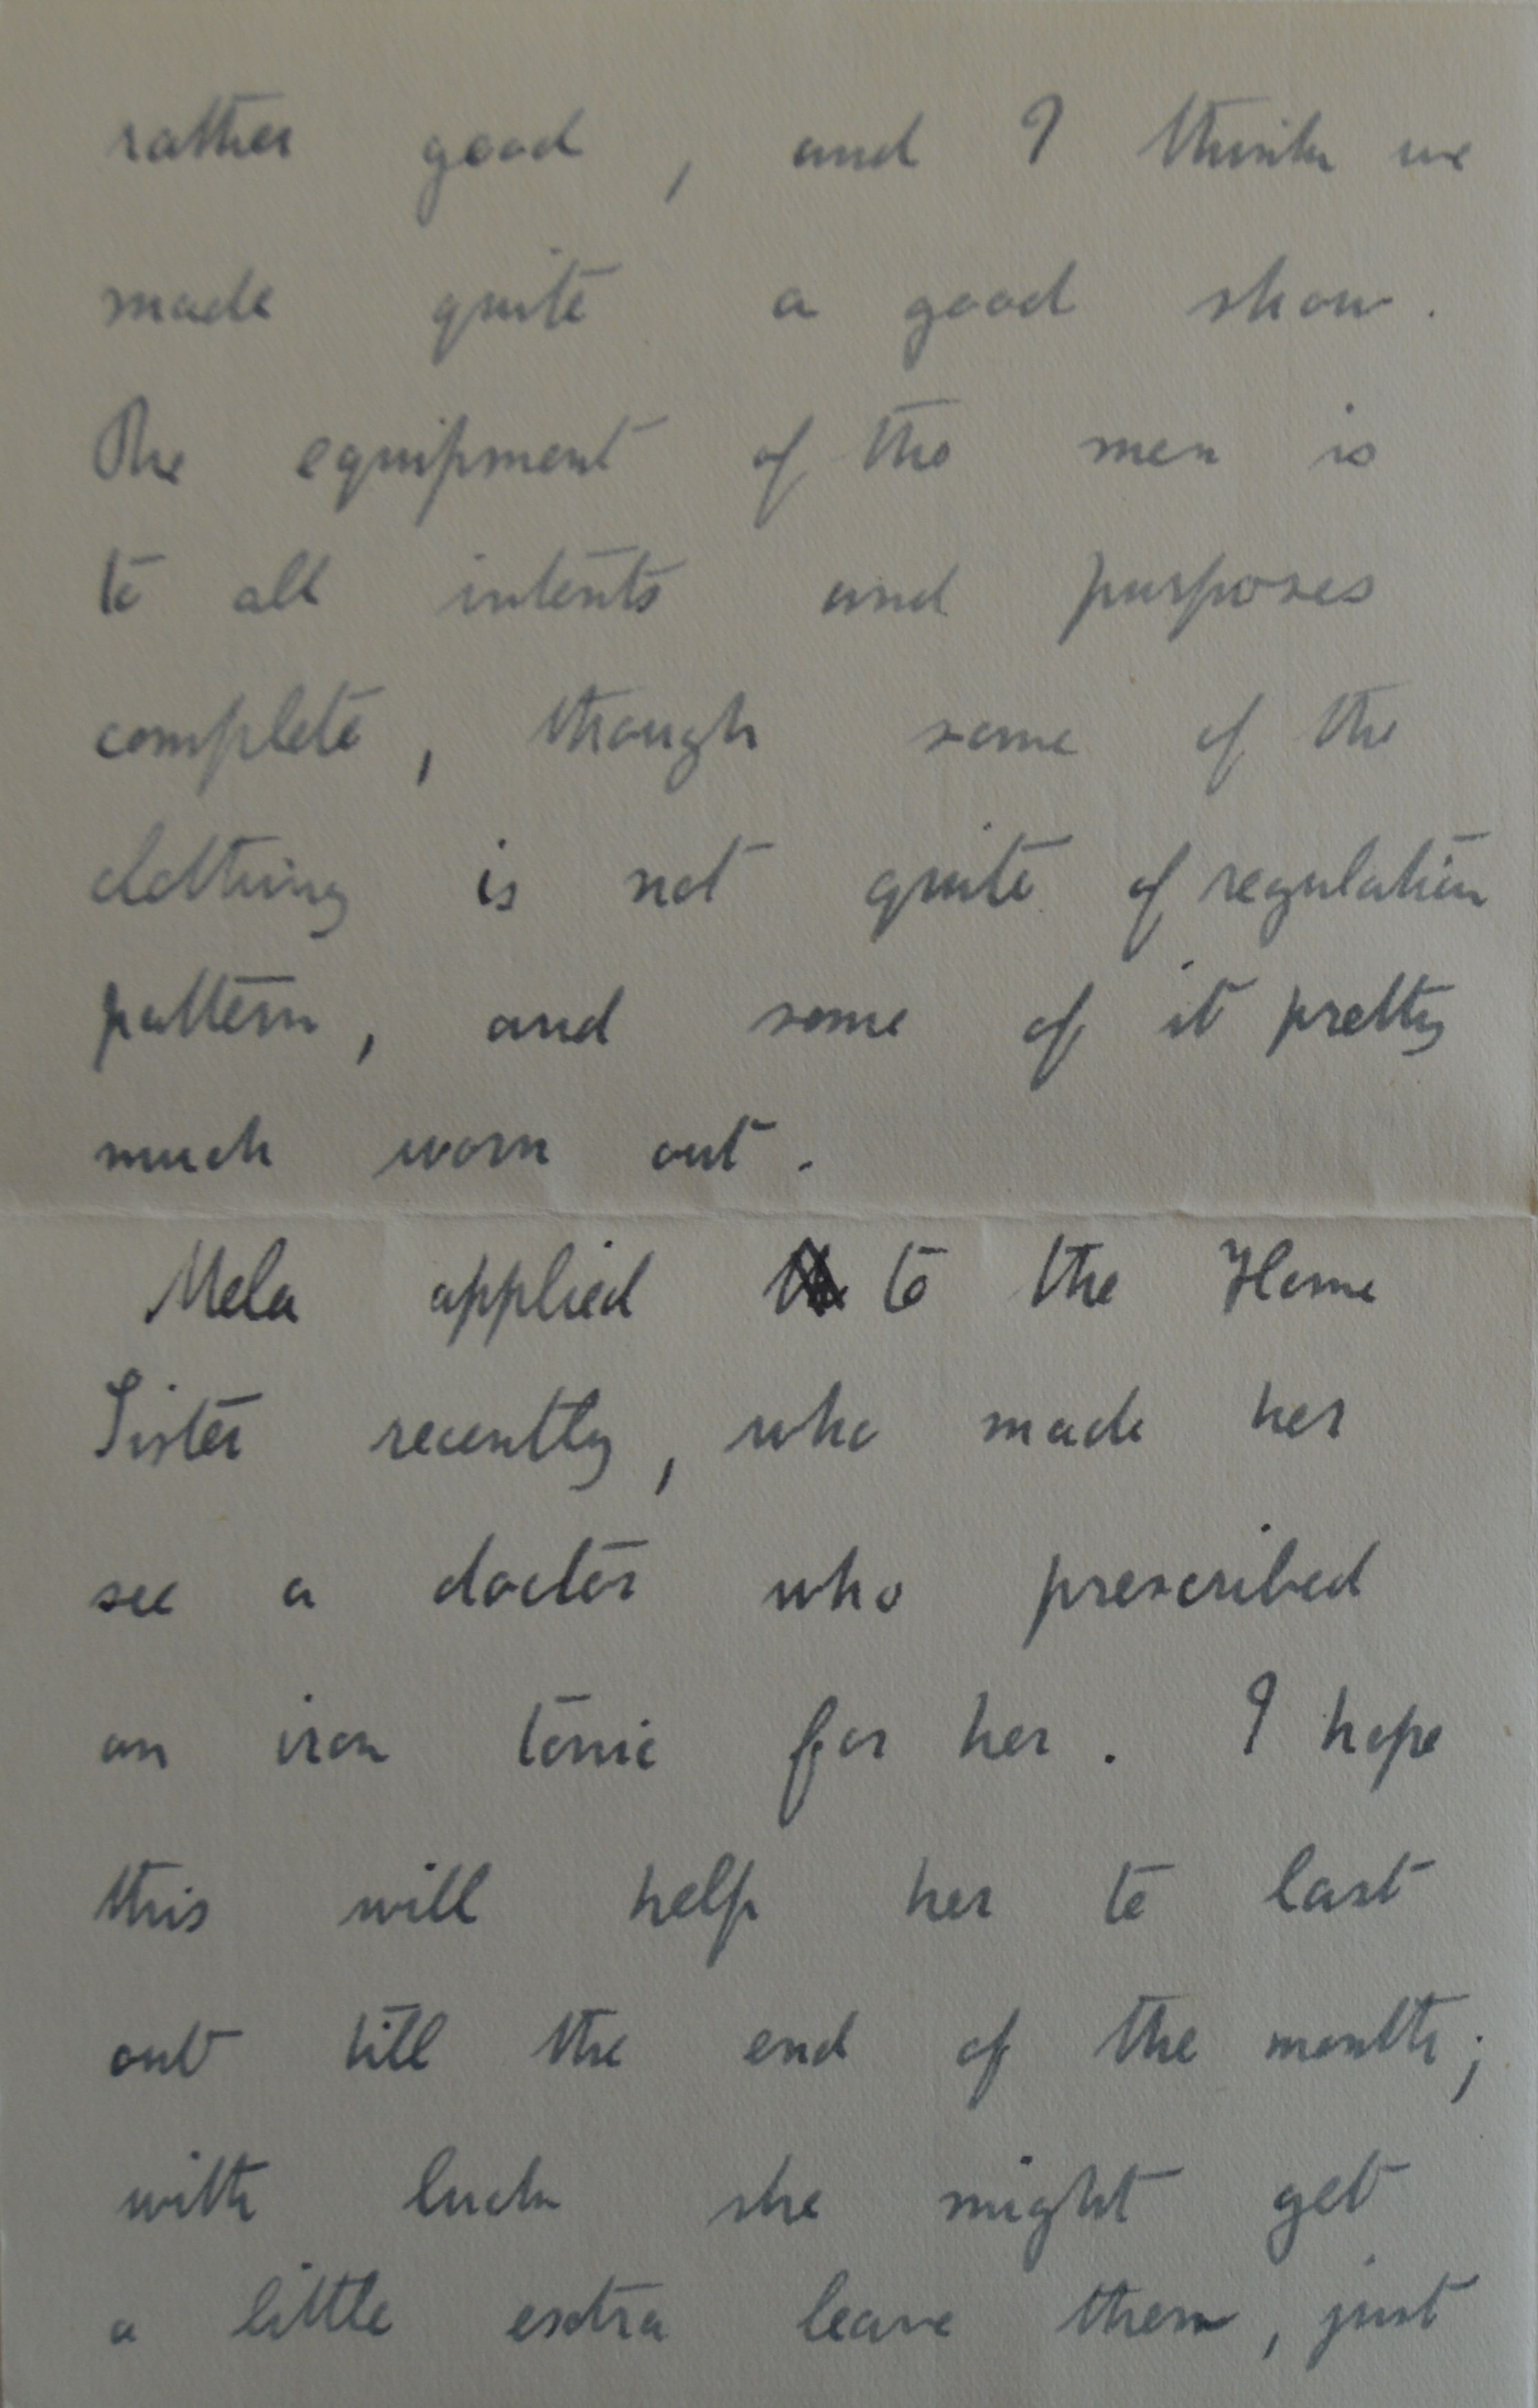 rather good, and I think we
made quite a good show.
The equipment of the men is
to all intents and purposes
complete, though some of the
clothing is not quite of regulation
pattern, and some of it pretty
much worn out.
Mela applied to the Home
Sister recently, who made her
see a doctor who prescribed
an iron tonic for her. I hope
this will help her to last
out till the end of the month;
with luck she might get
a little extra leave then, just